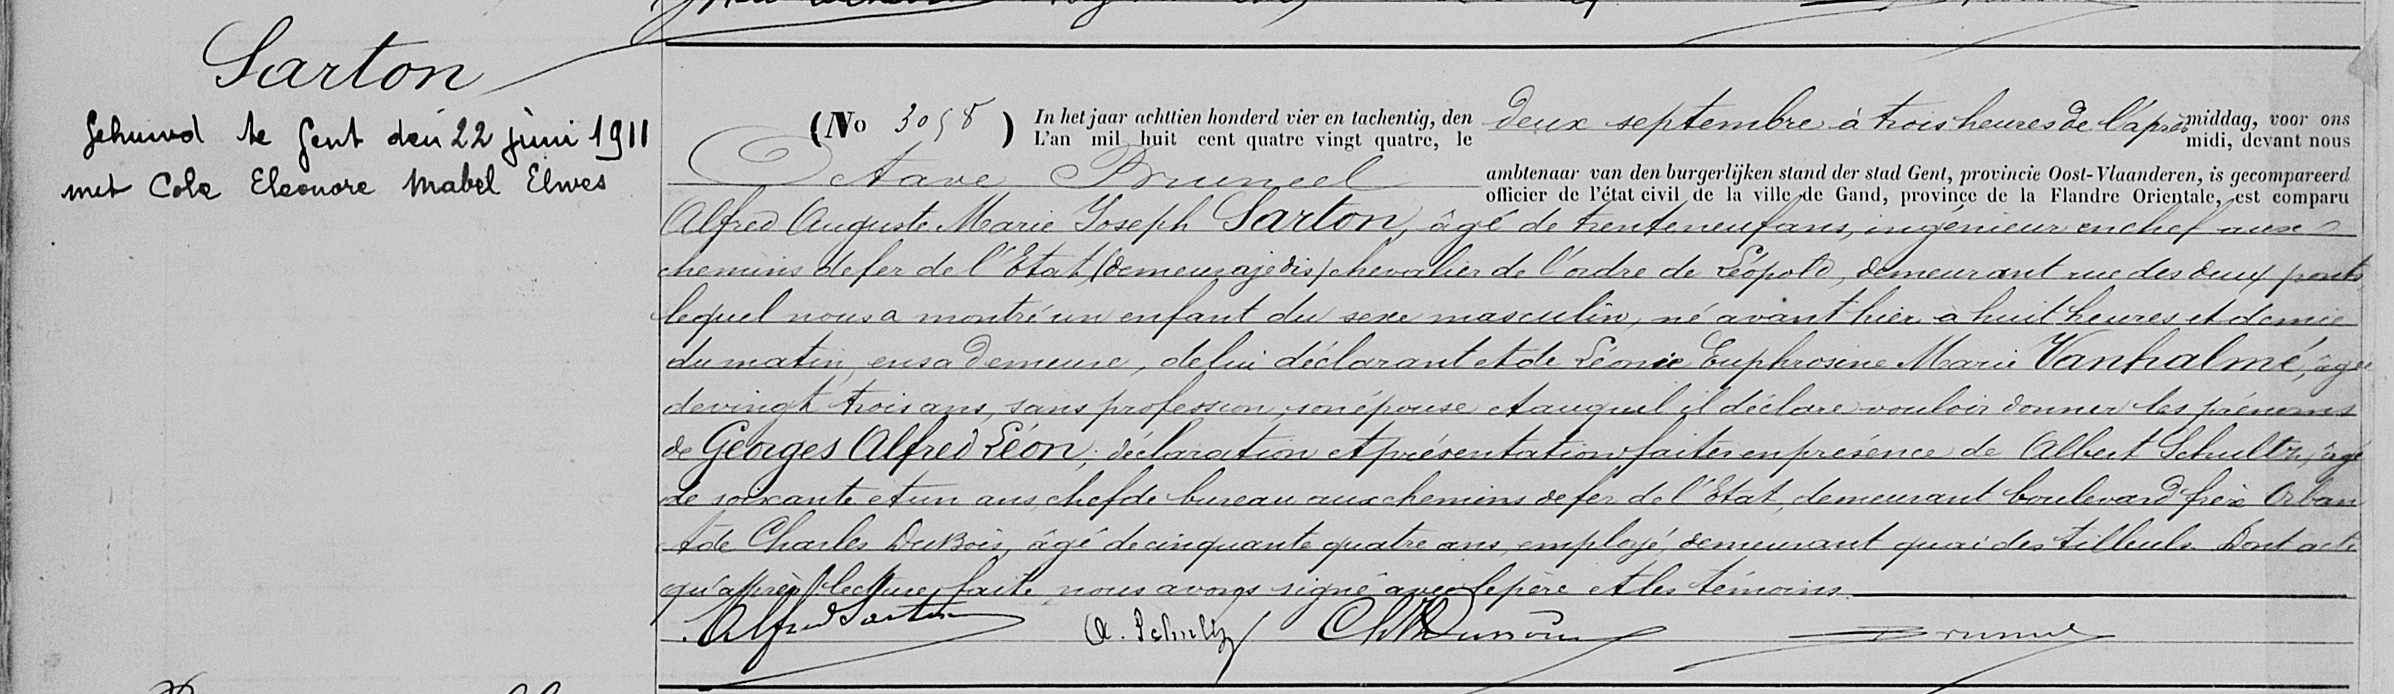 Sarton
Gehuwd te Gent den 22 juni 1911
met Cole Eleonore Mabel Elwes
(No 3058) In het jaar achttien honderd vier en tachentig, den deux septembre à trois heures de l'après middag, voor ons
L'an mil huit cent quatre vingt quatre, le midi, devant nous
Octave Bruneel ambtenaar van den burgerlijken stand der stad Gent, provincie Oost-Vlaanderen, is gecompareerd
officier de l'état civil de la ville de Gand, province de la Flandre Orientale, est comparu
Alfred Auguste Marie Joseph Sarton, âgé de trente neuf ans, ingénieur en chef aux
chemins de fer de l'Etat, (demeuraje dis) chevalier de l'ordre de Léopold, demeurant rue des deux ponts
lequel nous a montré un enfant du sexe masculin, né avant hier à huit heures et demie
du matin, en sa demeure, de lui déclarant et de Léonie Euphrosine Marie Vanhalmé, âgée
de vingt trois ans, sans profession, son épouse et auquel il déclare vouloir donner les prénoms
de Georges Alfred Léon; déclaration et présentation faites en présence de Albert Schultz, âgé
de soixante et un ans, chef de bureau aux chemins de fer de l'Etat, demeurant boulevard frère Orban
et de Charles DuBois, âgé de cinquante quatre ans, employé, demeurant quai des tilleuls. Dont acte
qu'après lecture faite, nous avons signé avec le père et les témoins.
Alfred Sarton A. Schultz Ch Dubois Bruneel